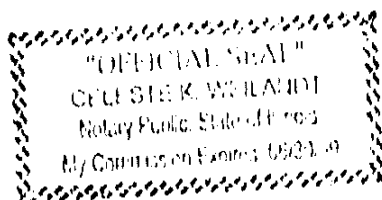 "OFFICIAL SEAL"
CELESTE K. WEILANDT
Notary Public, State of Illinois
My Commission Expires